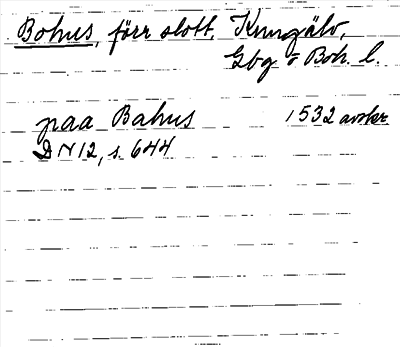 Bohus, förr slott, Kungälv,
Gbg o Boh. l.
paa Bahus 1532 avskr
DN 12, s. 644